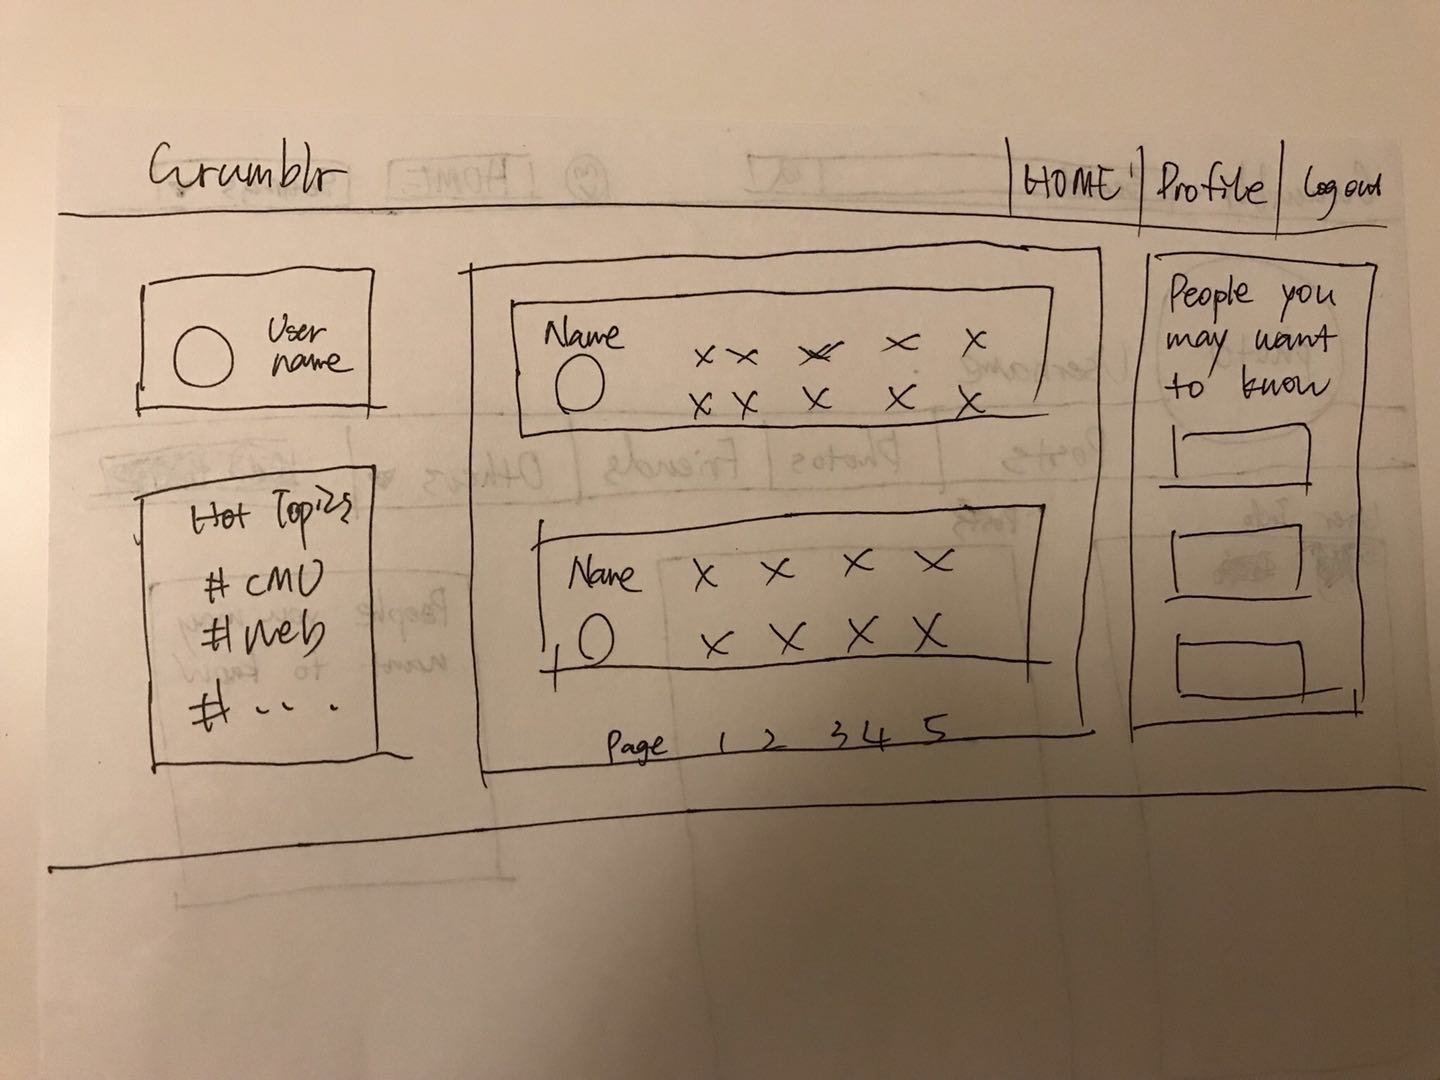 Grumblr
HOME
Profile
Logout
User
name
Hot Topics
# CMU
# Web
# ...
Name
x x x x x
x x x x x
Name
x x x x
x x x x
Page 1 2 3 4 5
People you
may want
to know